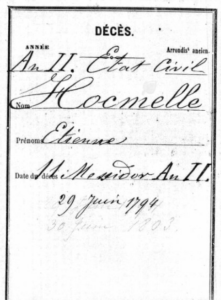 DÉCÈS.
ANNÉE Arrondist ancien.
An II. Etat Civil
Nom Hocmelle
Prénoms Etienne
Date du décès 11 Messidor An II.
29 Juin 1794
30 Juin 1893.